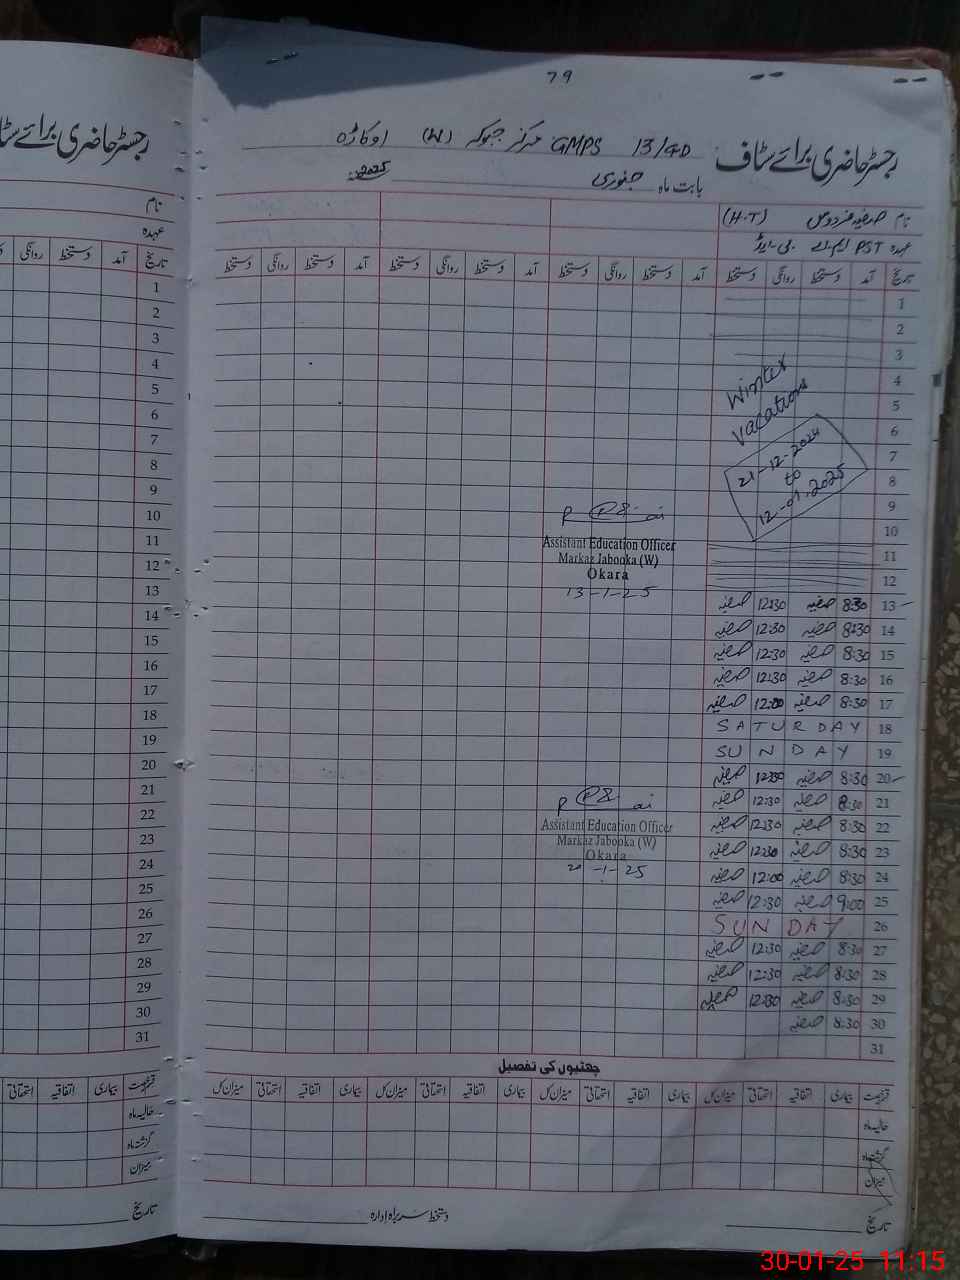 79
رجسٹر حاضری برائے سٹاف GMPS 13/4D مرکز جبوکہ (W) اوکاڑہ
بابت ماہ جنوری
نام صفیہ فردوس (H.T)
عہدہ PST ایم۔اے ۔ بی۔ایڈ
تاریخ آمد دستخط روانگی دستخط آمد دستخط روانگی دستخط آمد دستخط روانگی دستخط آمد دستخط روانگی دستخط
1
2
3
4
5
6
7
8
9
10
11
12
Winter
Vacations
21-12-2024
to
12-01-2025
Assistant Education Officer
Markaz Jabooka (W)
Okara
13-1-25
13 8:30 صفیہ 12:30 صفیہ
14 8:30 صفیہ 12:30 صفیہ
15 8:30 صفیہ 12:30 صفیہ
16 8:30 صفیہ 12:30 صفیہ
17 8:30 صفیہ 12:00 صفیہ
18 SATURDAY
19 SUNDAY
20 8:30 صفیہ 12:30 صفیہ
21 8:30 صفیہ 12:30 صفیہ
22 8:30 صفیہ 12:30 صفیہ
23 8:30 صفیہ 12:30 صفیہ
24 8:30 صفیہ 12:00 صفیہ
25 9:00 صفیہ 12:30 صفیہ
26 SUNDAY
27 8:30 صفیہ 12:30 صفیہ
28 8:30 صفیہ 12:30 صفیہ
29 8:30 صفیہ 12:30 صفیہ
30 8:30 صفیہ
31
Assistant Education Officer
Markaz Jabooka (W)
Okara
20-1-25
چھٹیوں کی تفصیل
بیماری اتفاقیہ استحقاقی میزان کل بیماری اتفاقیہ استحقاقی میزان کل بیماری اتفاقیہ استحقاقی میزان کل بیماری اتفاقیہ استحقاقی میزان کل
حالیہ ماہ
گزشتہ ماہ
میزان
تاریخ
دستخط سربراہ ادارہ
رجسٹر حاضری برائے
نام
عہدہ
تاریخ آمد دستخط روانگی
1
2
3
4
5
6
7
8
9
10
11
12
13
14
15
16
17
18
19
20
21
22
23
24
25
26
27
28
29
30
31
بیماری اتفاقیہ استحقاقی
حالیہ ماہ
گزشتہ ماہ
میزان
تاریخ
30-01-25 11:15